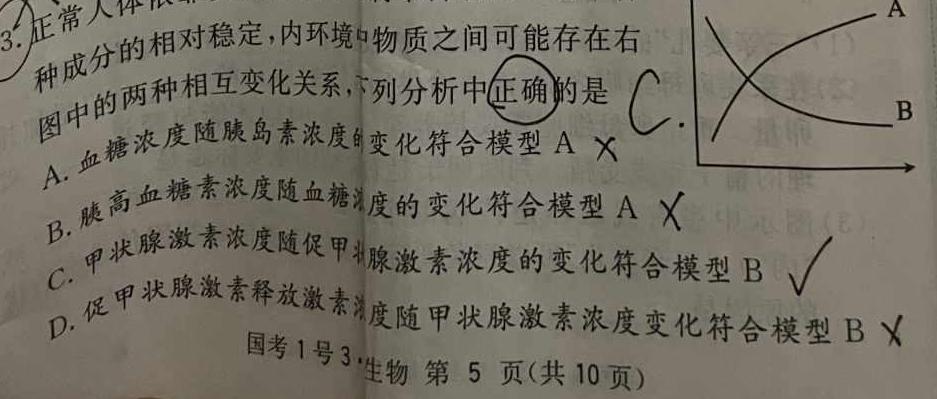 3.正常人体
种成分的相对稳定,内环境中物质之间可能存在右
图中的两种相互变化关系,下列分析中正确的是 C.
A.血糖浓度随胰岛素浓度的变化符合模型 A ×
B.胰高血糖素浓度随血糖浓度的变化符合模型 A ×
C.甲状腺激素浓度随促甲状腺激素浓度的变化符合模型 B √
D.促甲状腺激素释放激素浓度随甲状腺激素浓度变化符合模型 B ×
A
B
国考1号3·生物 第 5 页(共 10 页)